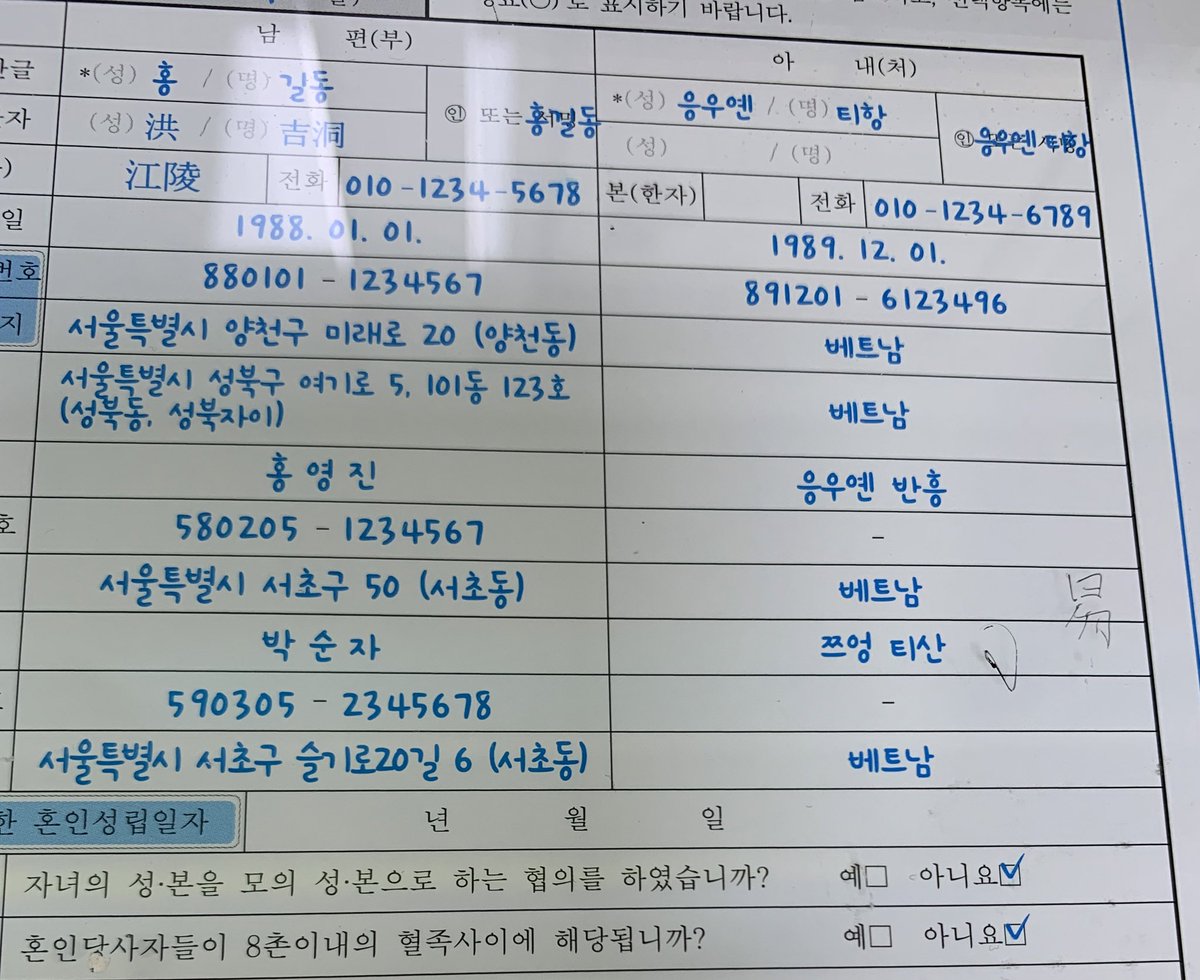 로 표시하기 바랍니다.
남 편(부)
아 내(처)
*(성) 홍 / (명) 길동
(성) 洪 / (명) 吉洞
㊞ 또는 홍길동
*(성) 응우옌 / (명) 티항
(성) / (명)
㊞ 응우옌 티항
江陵 전화 010-1234-5678
본(한자) 전화 010-1234-6789
일 1988. 01. 01. 1989. 12. 01.
번호 880101 - 1234567 891201 - 6123496
지 서울특별시 양천구 미래로 20 (양천동) 베트남
서울특별시 성북구 여기로 5, 101동 123호
(성북동, 성북자이) 베트남
홍 영 진 응우옌 반흥
호 580205 - 1234567 -
서울특별시 서초구 50 (서초동) 베트남
박 순 자 쯔엉 티산
590305 - 2345678 -
서울특별시 서초구 슬기로20길 6 (서초동) 베트남
한 혼인성립일자 년 월 일
자녀의 성·본을 모의 성·본으로 하는 협의를 하였습니까? 예□ 아니요☑
혼인당사자들이 8촌이내의 혈족사이에 해당됩니까? 예□ 아니요☑